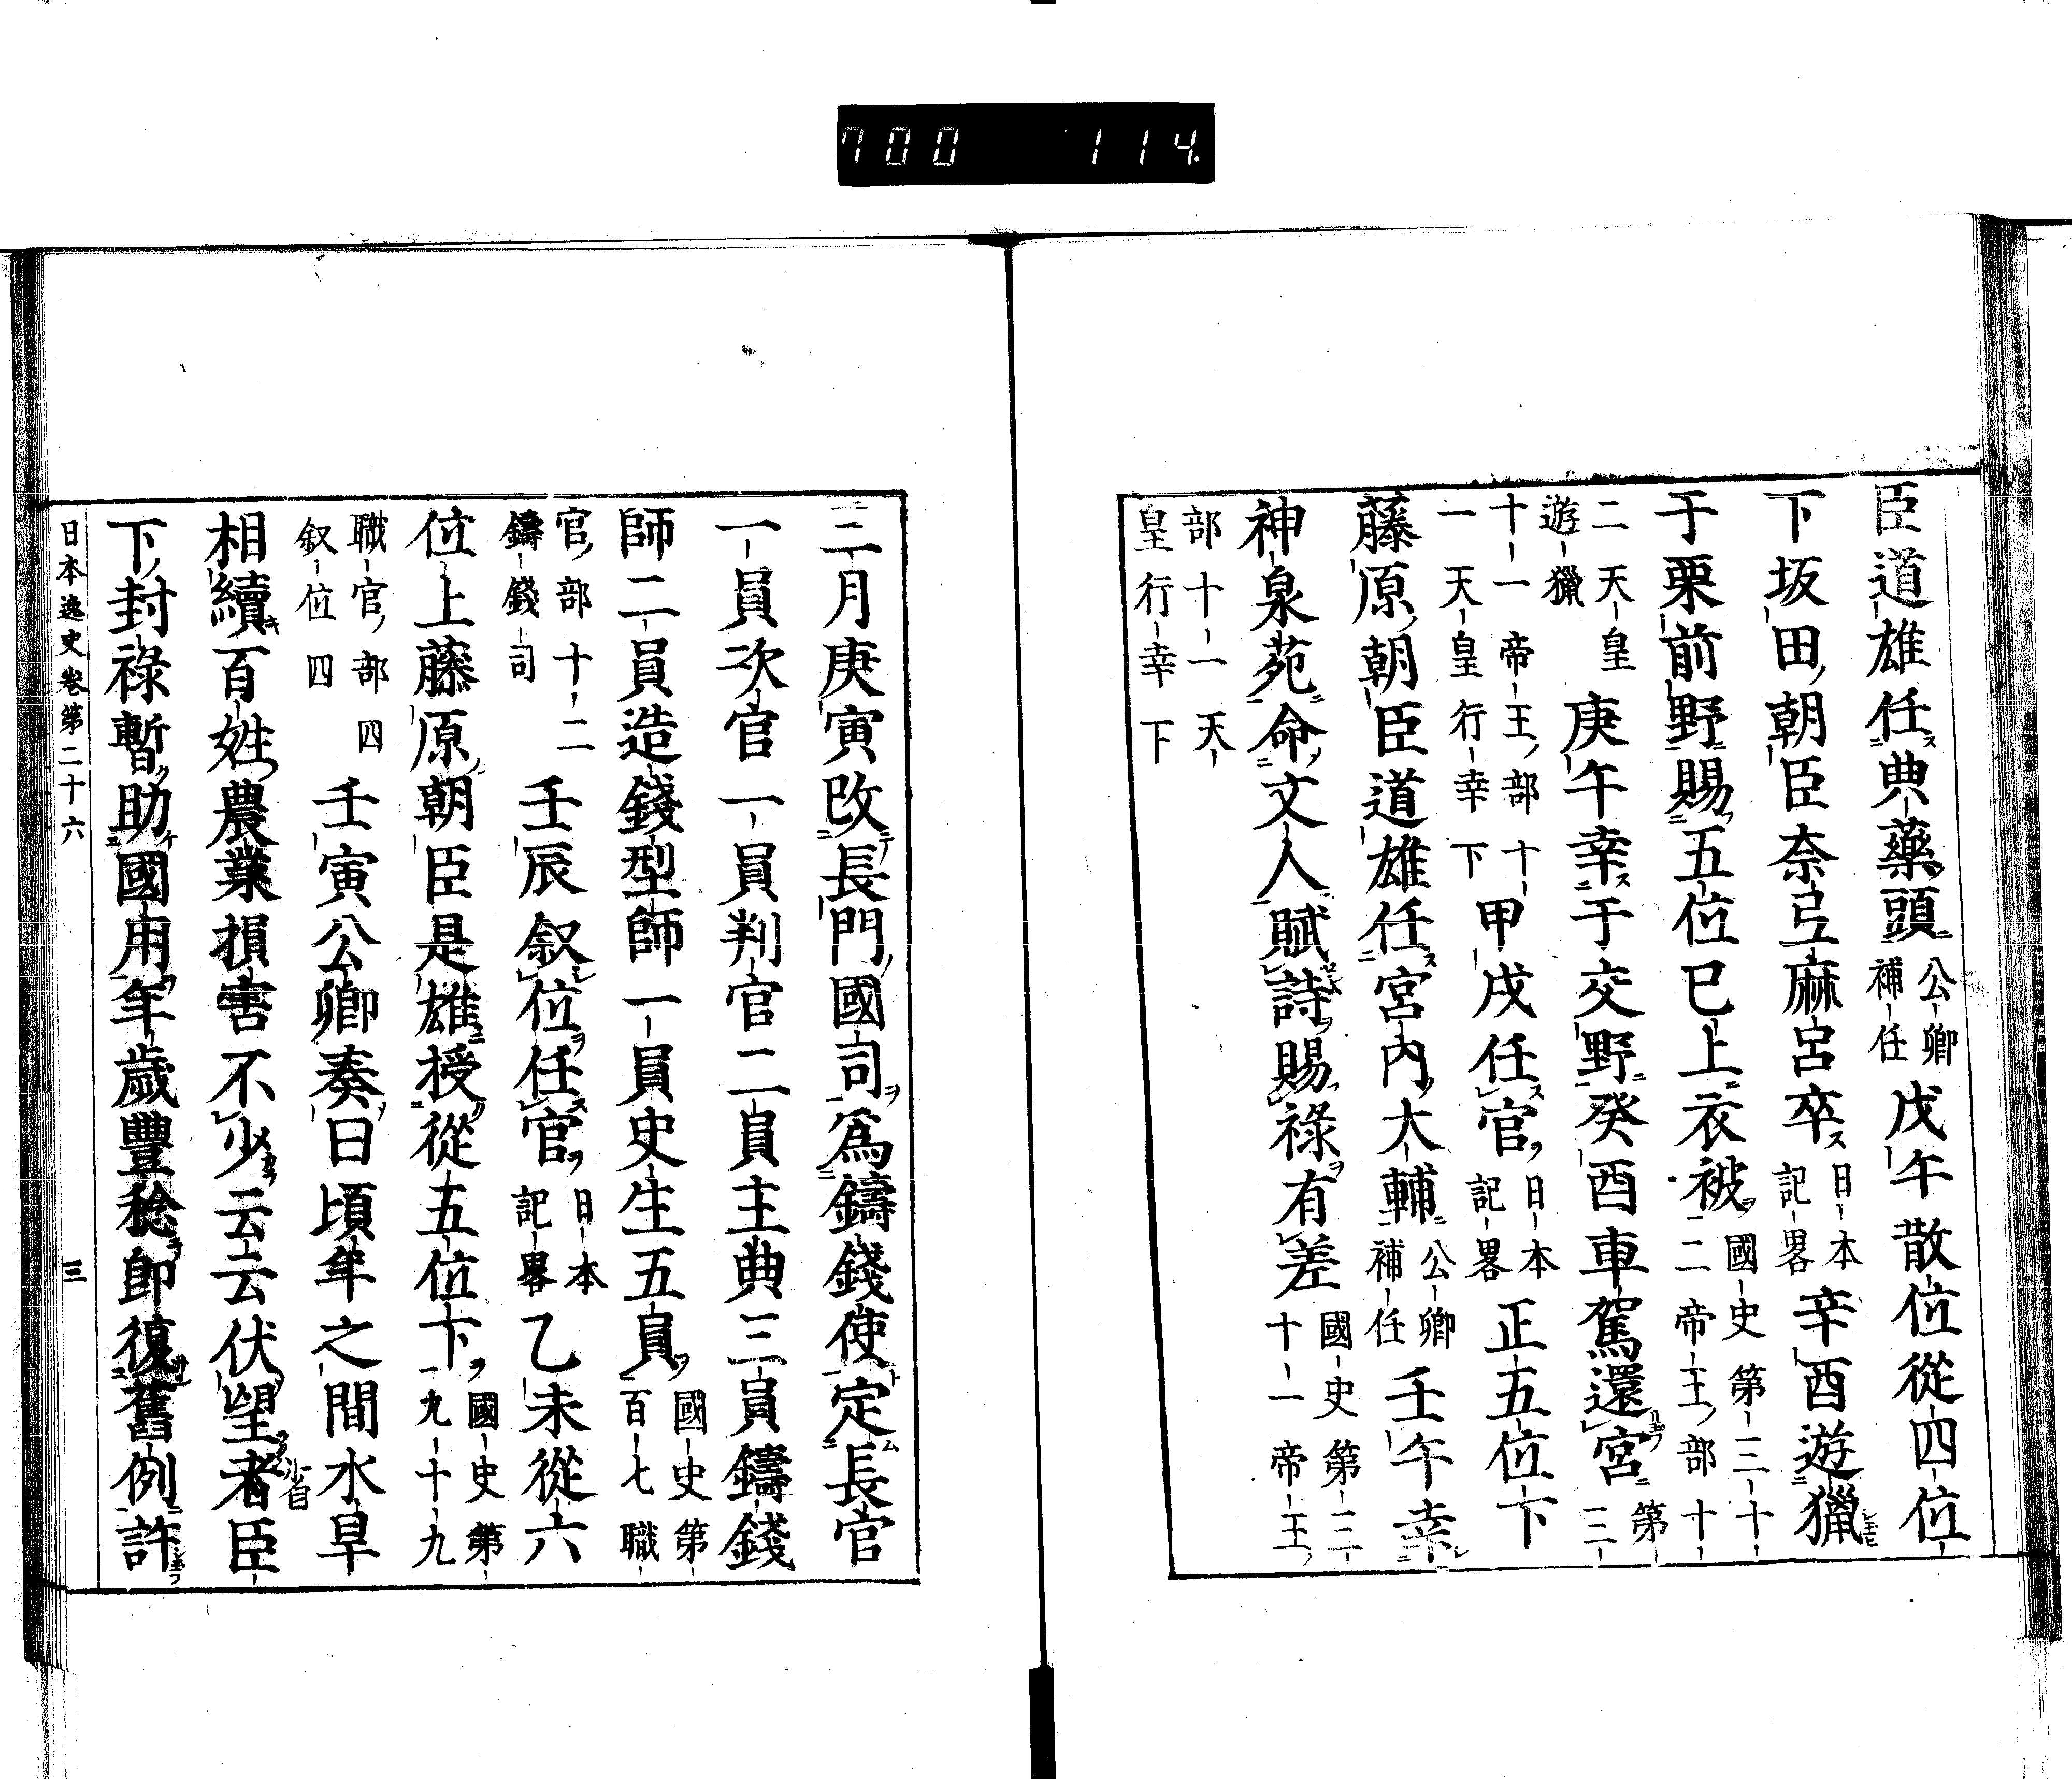 700 114
臣道雄任典藥頭公卿補任戊午散位從四位
下坂田朝臣奈弖麻呂卒日本記畧辛酉遊獵
于栗前野賜五位已上衣被國史第三十二帝王部十
二天皇遊獵庚午幸于交野癸酉車駕還宮第三
十一帝王部十一天皇行幸下甲戌任官日本記畧正五位下
藤原朝臣道雄任宮內大輔公卿補任壬午幸
神泉苑命文人賦詩賜祿有差國史第三十一帝王
部十一天皇行幸下
三月庚寅改長門國司爲鑄錢使定長官
一員次官一員判官二員主典三員鑄錢
師二員造錢型師一員史生五員國史第百七職
官部十二鑄錢司壬辰叙位任官日本記畧乙未從六
位上藤原朝臣是雄授從五位下國史第九十九
職官部四叙位四壬寅公卿奏曰頃年之間水旱
相續百姓農業損害不少云云伏望者臣
下封祿暫助國用年歲豐稔即復舊例許
日本逸史卷第二十六 三